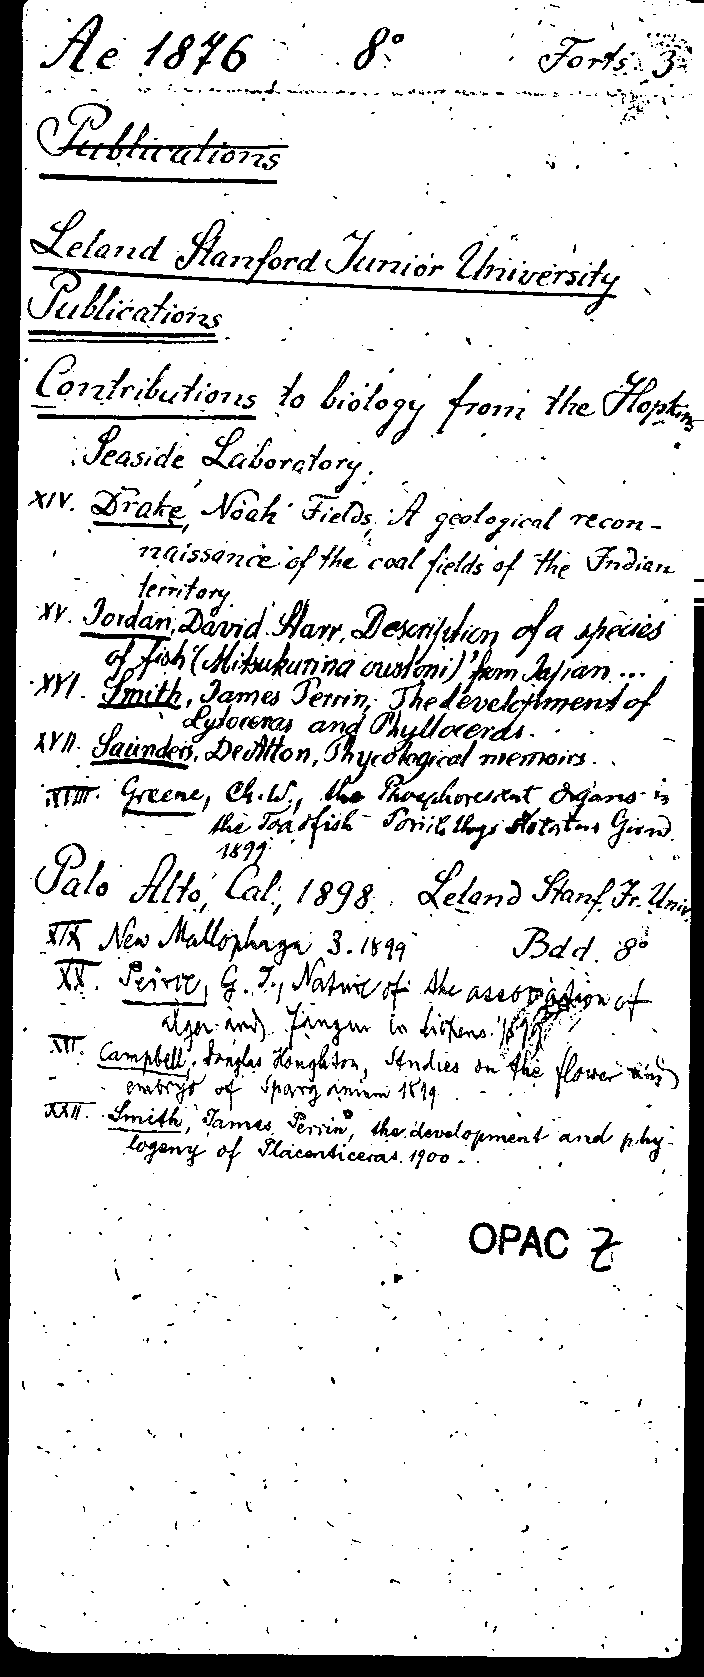 Ae 1876 8° Forts. 3
Publications
Leland Stanford Junior University
Publications
Contributions to biology from the Hopkins
Seaside Laboratory.
XIV. Drake, Noah Fields, A geological recon-
naissance of the coal fields of the Indian
territory
XV. Jordan, David Starr, Description of a species
of fish (Mitsukurina owstoni) from Japan ...
XVI. Smith, James Perrin, The development of
Lytoceras and Phylloceras.
XVII. Saunders, De Alton, Phycological memoirs.
XVIII. Greene, Ch. W., the Phosphorescent Organs in
the Toadfish Porichthys Notatus Girard
1899
Palo Alto, Cal., 1898. Leland Stanf. Jr. Univ.
XIX New Mallophaga 3. 1899 Bdd. 8°
XX. Peirce, G. J., Nature of the association of
alga and fungus in lichens. 1899
XXI. Campbell, Douglas Houghton, Studies on the flower and
embryo of Sparganium 1899
XXII. Smith, James Perrin, the development and phy-
logeny of Placenticeras. 1900.
OPAC Z